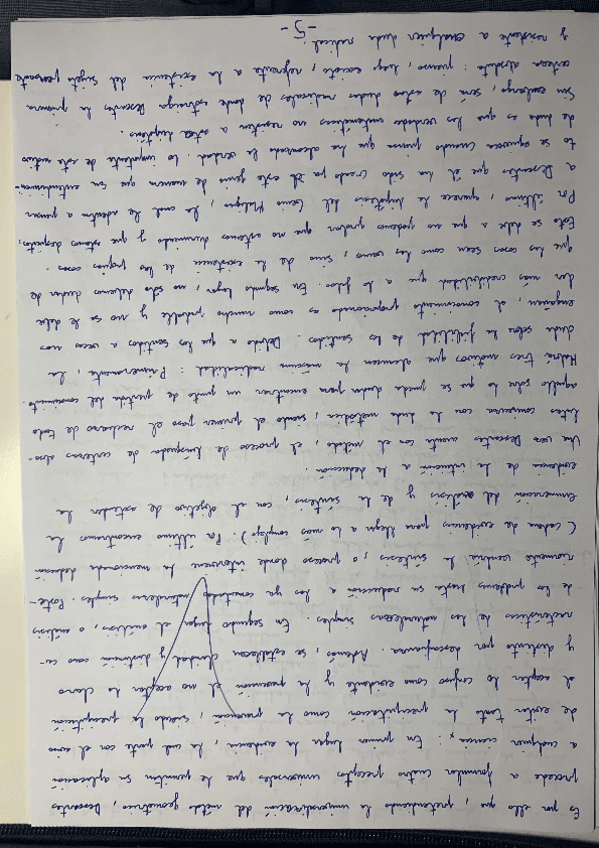 Es por ello que, pretendiendo la universalización del método geométrico, Descartes
procede a formular cuatro preceptos universales que le permitan su aplicación
a cualquier ciencia: En primer lugar la evidencia, la cual parte con el ánimo
de evitar tanto la precipitación como la prevención, siendo la precipitación
el aceptar lo confuso como evidente y la prevención el no aceptar lo claro
y distinto por desconfianza. Además, se establecen claridad y distinción como ca-
racterísticas de las naturalezas simples. En segundo lugar el análisis, o análisis
de los problemas hasta su reducción a las ya comentadas naturalezas simples. Poste-
riormente vendría la síntesis, o proceso donde interviene la mencionada deducción
(cadena de evidencias para llegar a lo más complejo). Por último encontramos la
enumeración del análisis y de la síntesis, con el objetivo de extender la
evidencia de la intuición a la deducción.
Una vez Descartes cuenta con el método, el proceso de búsqueda de certezas abso-
lutas comienza con la duda metódica, siendo el primer paso el rechazo de todo
aquello sobre lo que se pueda dudar para encontrar un punto de partida del conocimiento.
Habrá tres motivos que alcancen la máxima radicalidad: Primeramente, la
duda sobre la fiabilidad de los sentidos. Debido a que los sentidos a veces nos
engañan, el conocimiento proporcionado es como mucho probable y no se le debe
dar más credibilidad que a lo falso. En segundo lugar, no solo debemos dudar de
que las cosas sean como las vemos, sino de la existencia de las propias cosas.
Esto se debe a que no podemos probar que no estemos durmiendo y que estemos despiertos.
Por último, aparece la hipótesis del Genio Maligno, la cual le adentra a pensar
a Descartes que él ha sido creado por este genio de manera que su entendimien-
to se equivoca cuando piensa que ha alcanzado la verdad. Lo importante de este motivo
de duda es que las verdades matemáticas no resisten a esta hipótesis.
Sin embargo, será de estas dudas radicales de donde Descartes extraiga la primera
certeza absoluta: pienso, luego existo, referente a la existencia del sujeto pensante
y resistente a cualquier duda radical.
-5-